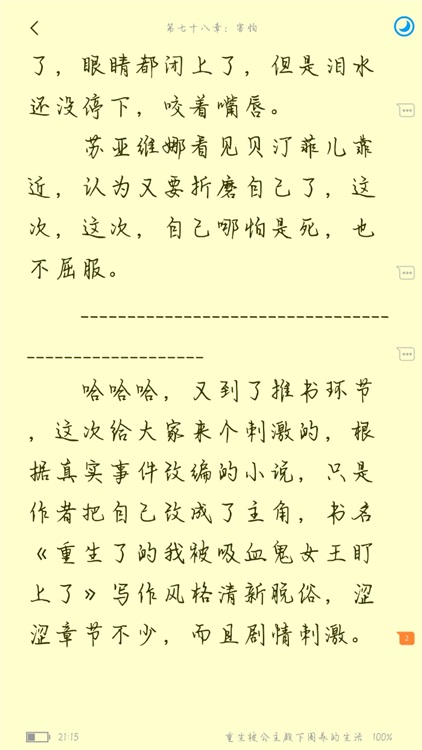 第七十八章：害怕
了，眼睛都闭上了，但是泪水
还没停下，咬着嘴唇。
苏亚维娜看见贝汀菲儿靠
近，认为又要折磨自己了，这
次，这次，自己哪怕是死，也
不屈服。
---------------------------------
-------------------
哈哈哈，又到了推书环节
，这次给大家来个刺激的，根
据真实事件改编的小说，只是
作者把自己改成了主角，书名
《重生了的我被吸血鬼女王盯
上了》写作风格清新脱俗，涩
涩章节不少，而且剧情刺激。
2
21:15 重生被公主殿下圈养的生活 100%